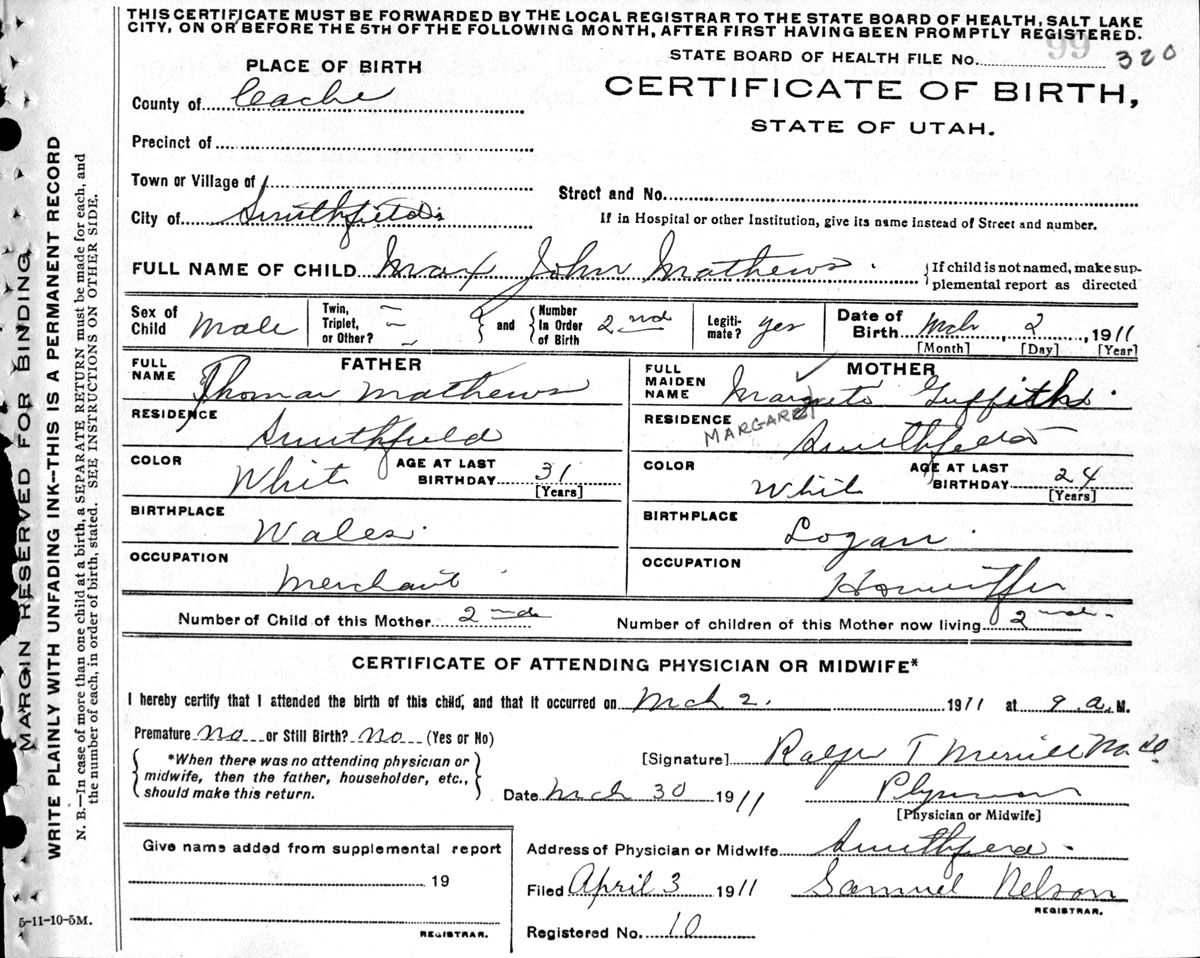 THIS CERTIFICATE MUST BE FORWARDED BY THE LOCAL REGISTRAR TO THE STATE BOARD OF HEALTH, SALT LAKE
CITY, ON OR BEFORE THE 5TH OF THE FOLLOWING MONTH, AFTER FIRST HAVING BEEN PROMPTLY REGISTERED.
99
STATE BOARD OF HEALTH FILE No. 320
PLACE OF BIRTH
CERTIFICATE OF BIRTH,
STATE OF UTAH.
County of Cache
Precinct of
Town or Village of
Street and No.
City of Smithfield
If in Hospital or other Institution, give its name instead of Street and number.
FULL NAME OF CHILD Max John Mathews
If child is not named, make sup-
plemental report as directed
Sex of Child Male
Twin, Triplet, or Other?
and
Number In Order of Birth 2nd
Legiti-mate? yes
Date of Birth Mch 2, 1911
[Month] [Day] [Year]
FATHER
FULL NAME Thomas Mathews
RESIDENCE Smithfield
COLOR White
AGE AT LAST BIRTHDAY 31
[Years]
BIRTHPLACE Wales
OCCUPATION Merchant
MOTHER
FULL MAIDEN NAME Griffiths
MARGARET
RESIDENCE Smithfield
COLOR White
AGE AT LAST BIRTHDAY 24
[Years]
BIRTHPLACE Logan
OCCUPATION
Number of Child of this Mother 2nd
Number of children of this Mother now living 2nd
CERTIFICATE OF ATTENDING PHYSICIAN OR MIDWIFE*
I hereby certify that I attended the birth of this child, and that it occurred on Mch 2. 1911 at 9 a. M.
Premature No or Still Birth? No (Yes or No)
*When there was no attending physician or
midwife, then the father, householder, etc.,
should make this return.
[Signature] Ralph T Merrill
Date Mch 30 1911
[Physician or Midwife]
Give name added from supplemental report
19
REGISTRAR.
Address of Physician or Midwife Smithfield
Filed April 3 1911 Samuel Nelson
REGISTRAR.
Registered No. 10
5-11-10-5M.
MARGIN RESERVED FOR BINDING
WRITE PLAINLY WITH UNFADING INK--THIS IS A PERMANENT RECORD
N. B.—In case of more than one child at a birth, a SEPARATE RETURN must be made for each, and
the number of each, in order of birth, stated. SEE INSTRUCTIONS ON OTHER SIDE.